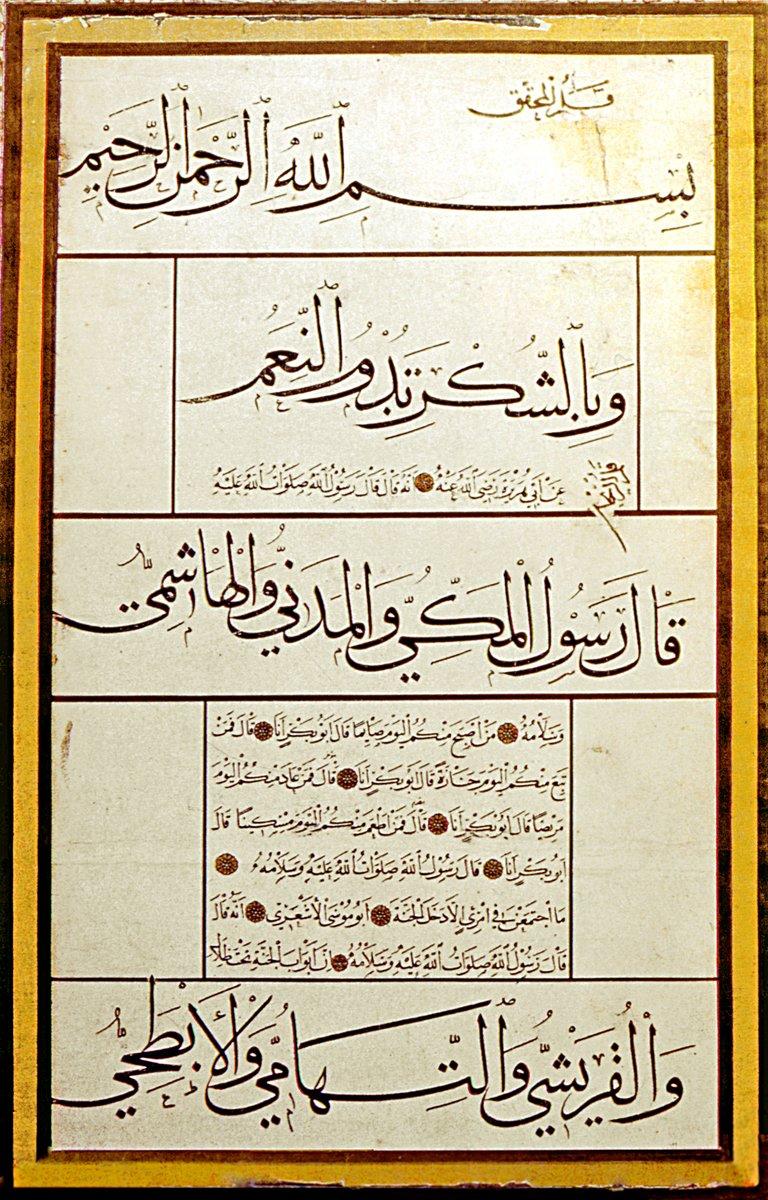 قلم المحقق
بِسْمِ اللَّهِ الرَّحْمَٰنِ الرَّحِيمِ
وَبِالشُّكْرِ تَبْدُو النِّعَمُ
عَنْ أَبِي هُرَيْرَةَ رَضِيَ اللَّهُ عَنْهُ أَنَّهُ قَالَ قَالَ رَسُولُ اللَّهِ صَلَوَاتُ اللَّهِ عَلَيْهِ
قَالَ رَسُولُ الْمَكِّيُّ وَالْمَدَنِيُّ وَالْهَاشِمِيُّ
وَسَلَامُهُ مَنْ أَصْبَحَ مِنْكُمُ الْيَوْمَ صَائِمًا قَالَ أَبُو بَكْرٍ أَنَا قَالَ فَمَنْ
تَبِعَ مِنْكُمُ الْيَوْمَ جَنَازَةً قَالَ أَبُو بَكْرٍ أَنَا قَالَ فَمَنْ عَادَ مِنْكُمُ الْيَوْمَ
مَرِيضًا قَالَ أَبُو بَكْرٍ أَنَا قَالَ فَمَنْ أَطْعَمَ مِنْكُمُ الْيَوْمَ مِسْكِينًا قَالَ
أَبُو بَكْرٍ أَنَا قَالَ رَسُولُ اللَّهِ صَلَوَاتُ اللَّهِ عَلَيْهِ وَسَلَامُهُ
مَا اجْتَمَعْنَ فِي امْرِئٍ إِلَّا دَخَلَ الْجَنَّةَ أَبُو مُوسَى الْأَشْعَرِيِّ أَنَّهُ قَالَ
قَالَ رَسُولُ اللَّهِ صَلَوَاتُ اللَّهِ عَلَيْهِ وَسَلَامُهُ إِنَّ أَبْوَابَ الْجَنَّةِ تَحْتَ ظِلَالِ
وَالْقُرَيْشِيُّ وَالتِّهَامِيُّ وَالْأَبْطَحِيُّ